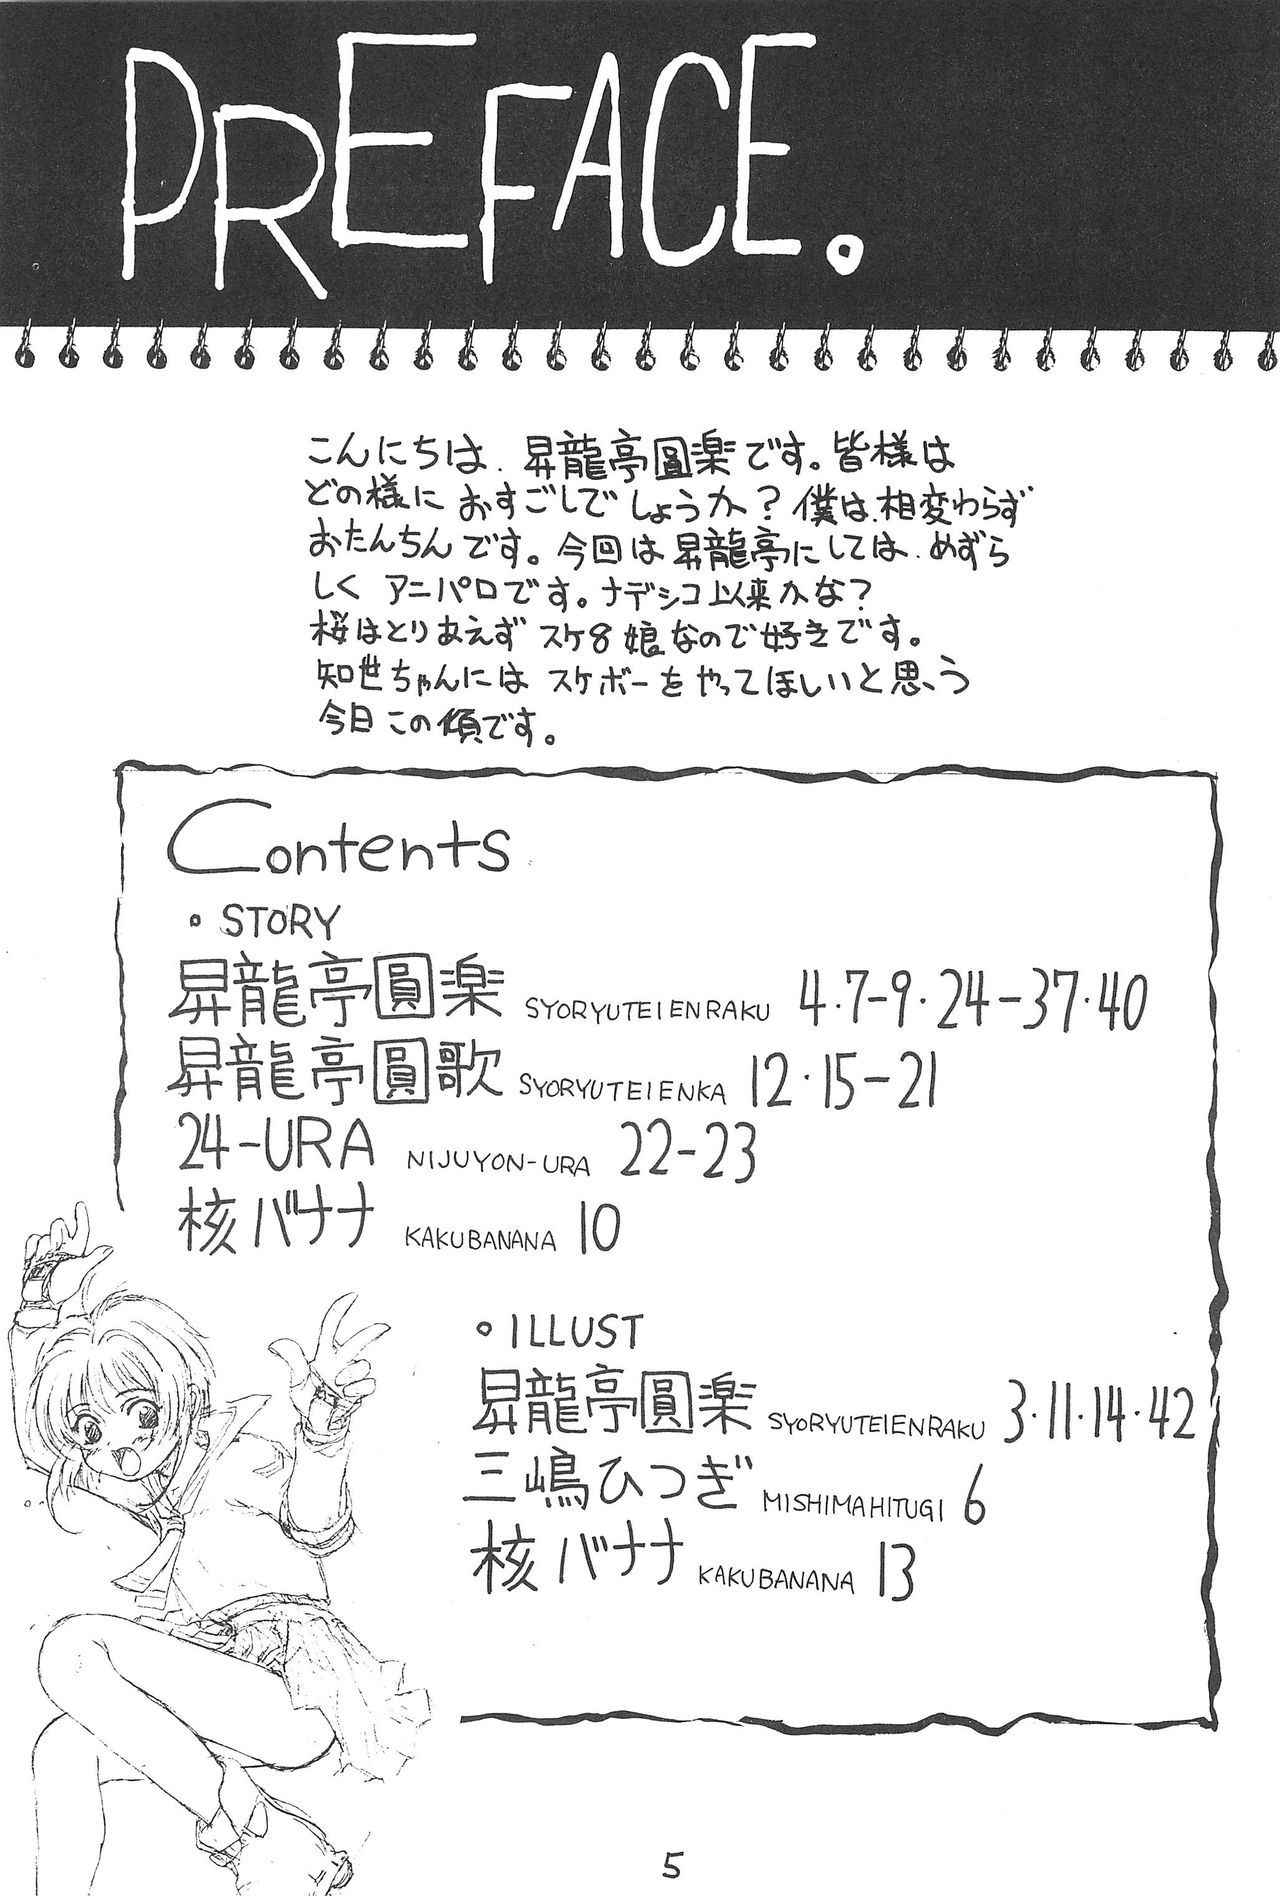 PREFACE.
こんにちは、昇龍亭圓楽です。皆様は
どの様におすごしでしょうか？僕は、相変わらず
おたんちんです。今回は昇龍亭にしては、めずら
しくアニパロです。ナデシコ以来かな？
桜はとりあえずスケ8娘なので好きです。
知世ちゃんにはスケボーをやってほしいと思う
今日この頃です。
Contents
・STORY
昇龍亭圓楽 SYORYUTEIENRAKU 4・7-9・24-37・40
昇龍亭圓歌 SYORYUTEIENKA 12・15-21
24-URA NIJUYON-URA 22-23
核バナナ KAKUBANANA 10
・ILLUST
昇龍亭圓楽 SYORYUTEIENRAKU 3・11・14・42
三嶋ひつぎ MISHIMAHITUGI 6
核バナナ KAKUBANANA 13
5